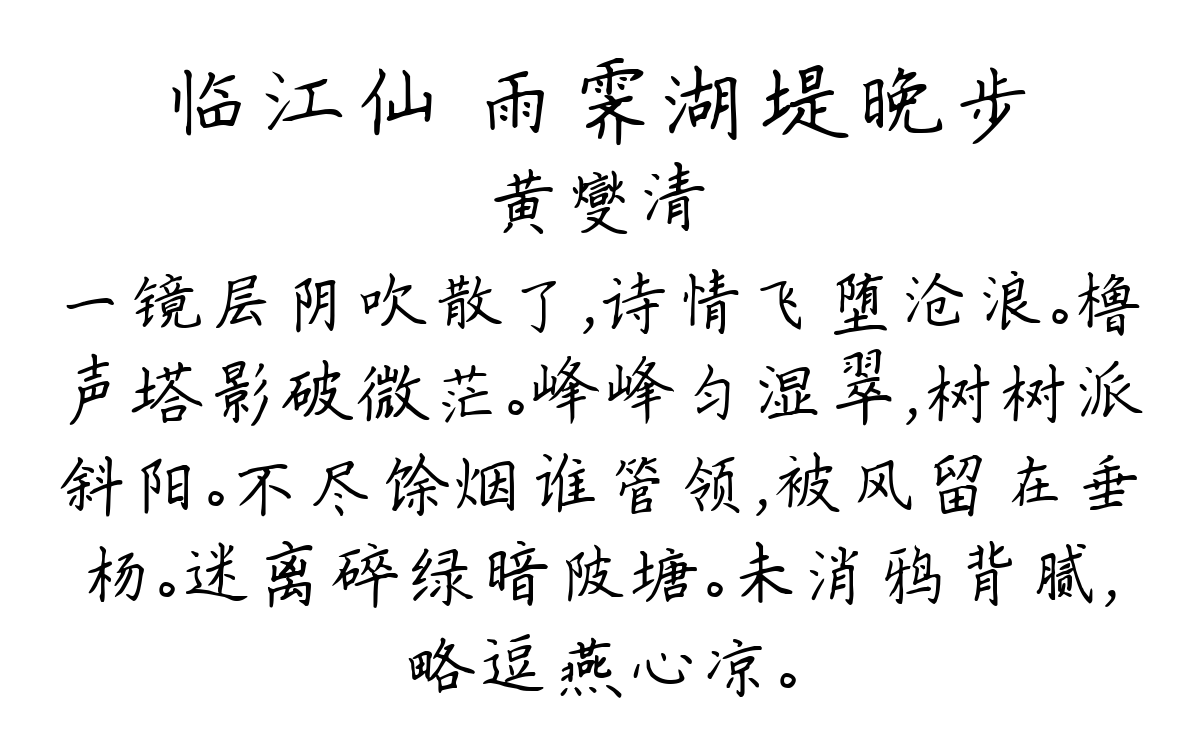 临江仙 雨霁湖堤晚步
黄燮清
一镜层阴吹散了,诗情飞堕沧浪。橹
声塔影破微茫。峰峰匀湿翠,树树派
斜阳。不尽馀烟谁管领,被风留在垂
杨。迷离碎绿暗陂塘。未消鸦背腻,
略逗燕心凉。